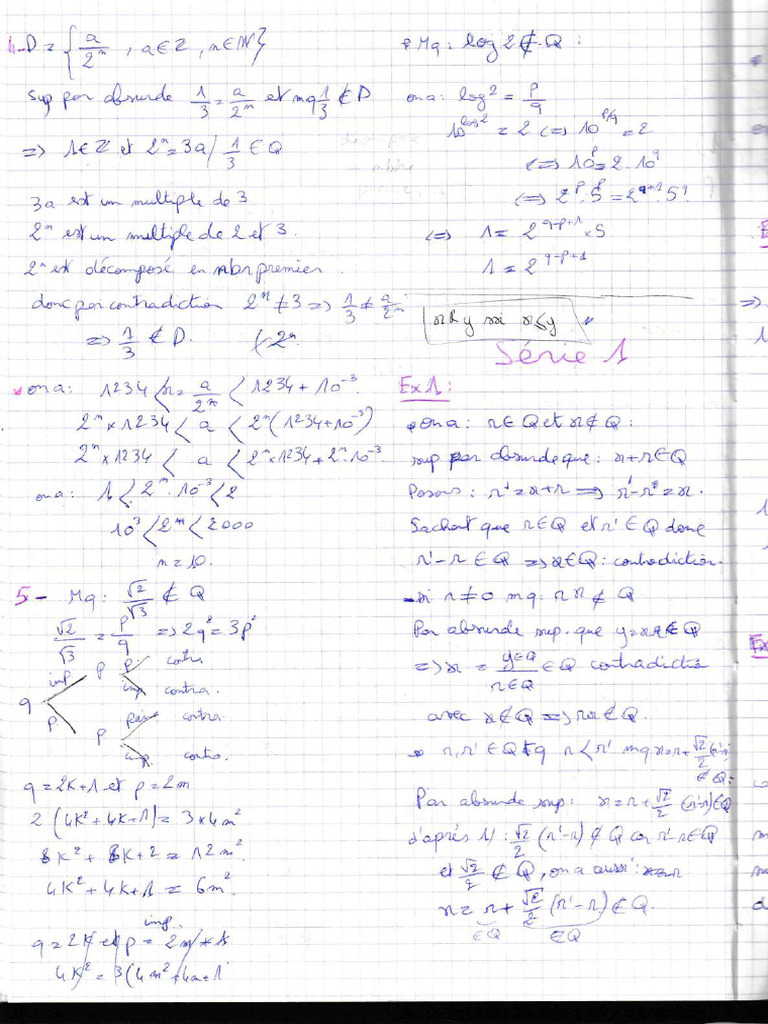 4-D = { a/2ⁿ , a∈Z , n∈N }
Sup par absurde 1/3 = a/2ⁿ et mq 1/3 ∉ D
=> 1∈Z et 2ⁿ = 3a / 1/3 ∈ Q
3a est un multiple de 3
2ⁿ est un multiple de 2 et 3.
2ⁿ est décomposé en nbr premier
donc par contradiction 2ⁿ ≠ 3 => 1/3 ≠ a/2ⁿ
=> 1/3 ∉ D.
on a: 1234 < r = a/2ⁿ < 1234 + 10⁻³
2ⁿ×1234 < a < 2ⁿ(1234+10⁻³)
2ⁿ×1234 < a < 2ⁿ×1234 + 2ⁿ·10⁻³
on a: 1 < 2ⁿ·10⁻³ < 2
10³ < 2ⁿ < 2000
n = 10.
5- Mq: √2/√3 ∉ Q
√2/√3 = p/q => 2q² = 3p²
imp p p. contra
imp contra.
q
p. p pair contra
imp. contra.
q = 2K+1 et p = 2m
2(4K²+4K+1) = 3×4m²
8K² + 8K+2 = 12m².
4K²+4K+1 = 6m².
imp.
q = 2K et p = 2m+1
4K² = 3(4m²+4m+1
* Mq: log 2 ∉ Q:
on a: log 2 = p/q
10^log2 = 2 <=> 10^p/q = 2
<=> 10^p = 2·10^q
<=> 2^p·5^p = 2^q+1·5^q
<=> 1 = 2^q-p+1 × 5
1 = 2^q-p+1
Série 1
Ex 1:
on a: r∈Q et x∉Q:
sup par absurde que: x+r∈Q
Posons: r' = x+r => r'-r = x.
Sachant que r∈Q et r'∈Q donc
r'-r ∈ Q => x∈Q: contradiction.
-si r≠0 mq. rx ∉ Q
Par absurde sup. que y=xr∈Q
=> x = y∈Q/r∈Q ∈ Q contradiction
avec x∉Q => rx∉Q.
r,r'∈Q tq r<r' mq x=r+√2/2(r'-r)
∉Q:
Par absurde sup: x=r+√2/2 (r'-r)∈Q
d'après 1/: √2/2 (r'-r) ∉ Q car r'-r∈Q
et √2/2 ∉ Q, on a aussi:
x = r + √2/2 (r'-r) ∉ Q.
∈Q ∉Q